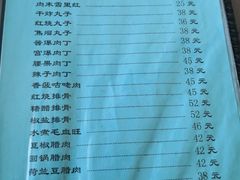 肉末雪里红 25元
干炸丸子 38元
红烧丸子 36元
焦溜丸子 38元
酱爆肉丁 38元
宫爆肉丁 38元
腰果肉丁 45元
辣子肉丁 38元
香菠咕咾肉 45元
红烧排骨 52元
糖醋排骨 52元
椒盐排骨 52元
水煮毛血旺 46元
豆椒腊肉 42元
回锅腊肉 42元
荷兰豆腊肉 38元